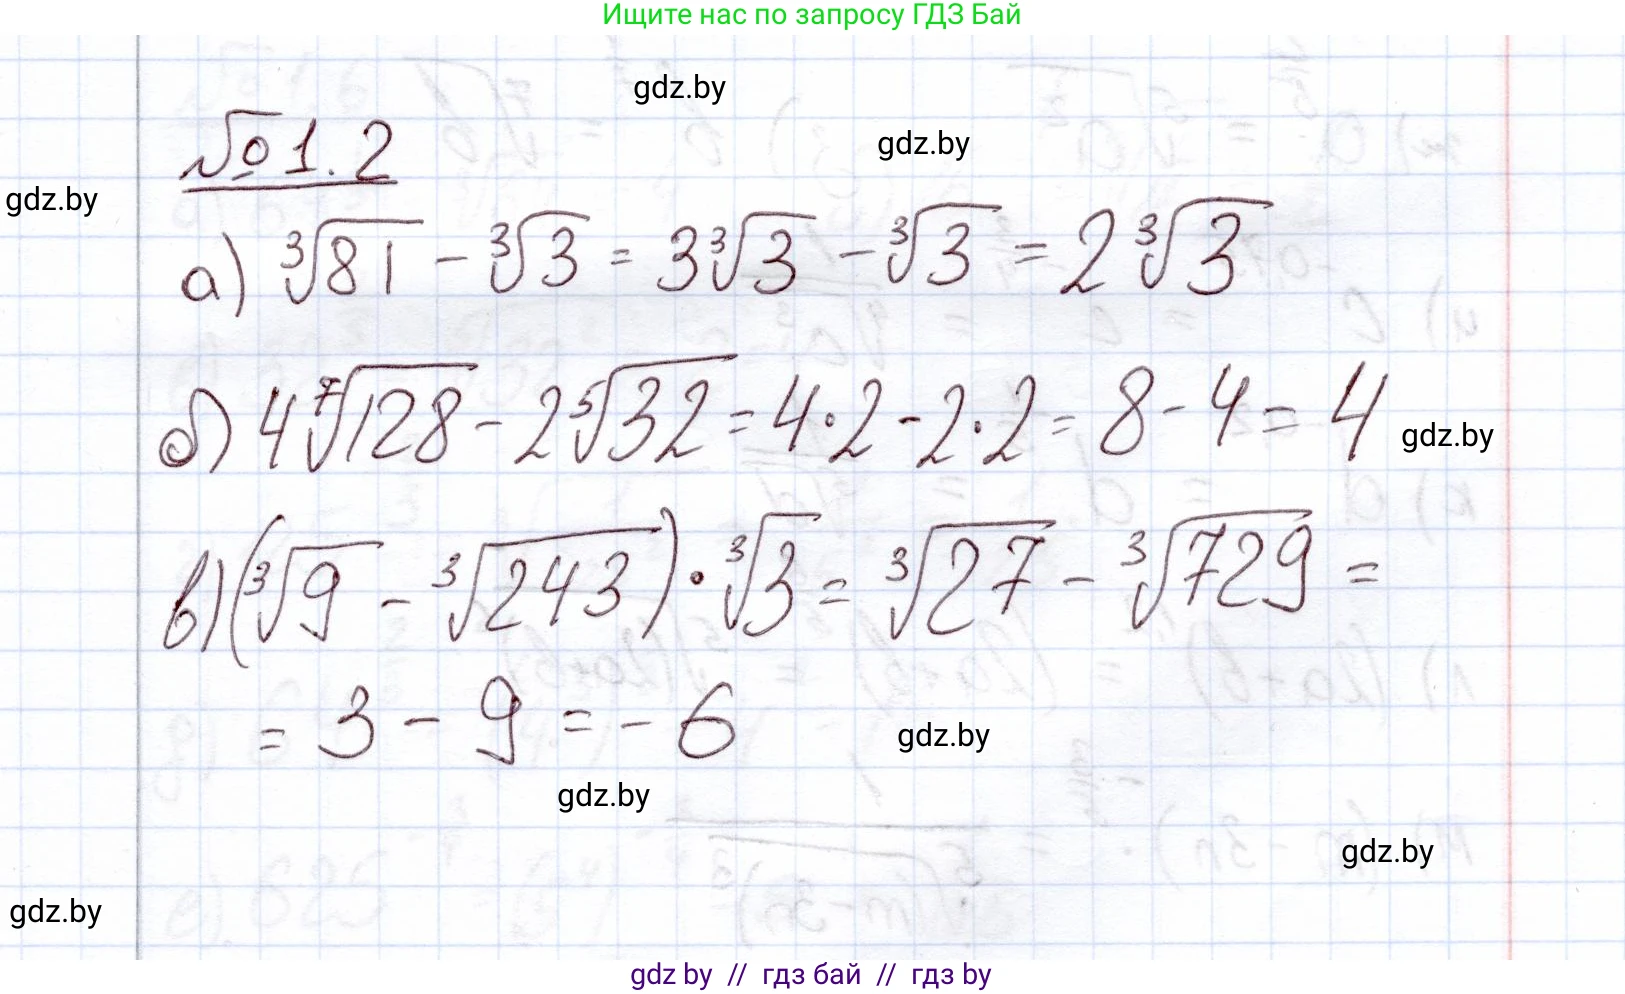 Ищите нас по запросу ГДЗ Бай
gdz.by
gdz.by
№1.2
gdz.by
а) ∛81 - ∛3 = 3∛3 - ∛3 = 2∛3
б) 4⁷√128 - 2⁵√32 = 4·2 - 2·2 = 8 - 4 = 4
gdz.by
в) (∛9 - ∛243) · ∛3 = ∛27 - ∛729 =
= 3 - 9 = - 6
gdz.by
gdz.by
gdz.by
gdz.by
gdz by // гдз бай // гдз by